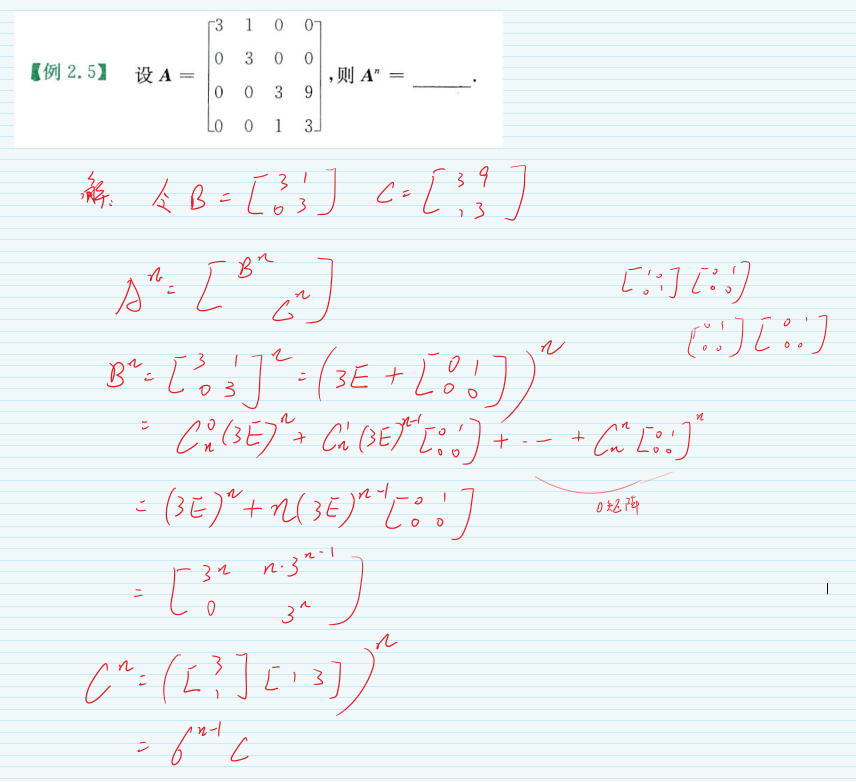 【例 2.5】 设 A = [3 1 0 0; 0 3 0 0; 0 0 3 9; 0 0 1 3], 则 Aⁿ = ______.
解: 令 B = [3 1; 0 3] C = [3 9; 1 3]
Aⁿ = [Bⁿ ; Cⁿ]
[1 0; 0 1] [0 1; 0 0]
[0 1; 0 0] [0 1; 0 0]
Bⁿ = [3 1; 0 3]ⁿ = (3E + [0 1; 0 0])ⁿ
= Cₙ⁰(3E)ⁿ + Cₙ¹(3E)ⁿ⁻¹[0 1; 0 0] + ... + Cₙⁿ[0 1; 0 0]ⁿ
= (3E)ⁿ + n(3E)ⁿ⁻¹[0 1; 0 0]
0矩阵
= [3ⁿ n·3ⁿ⁻¹; 0 3ⁿ]
Cⁿ = ([3; 1] [1 3])ⁿ
= 6ⁿ⁻¹ C